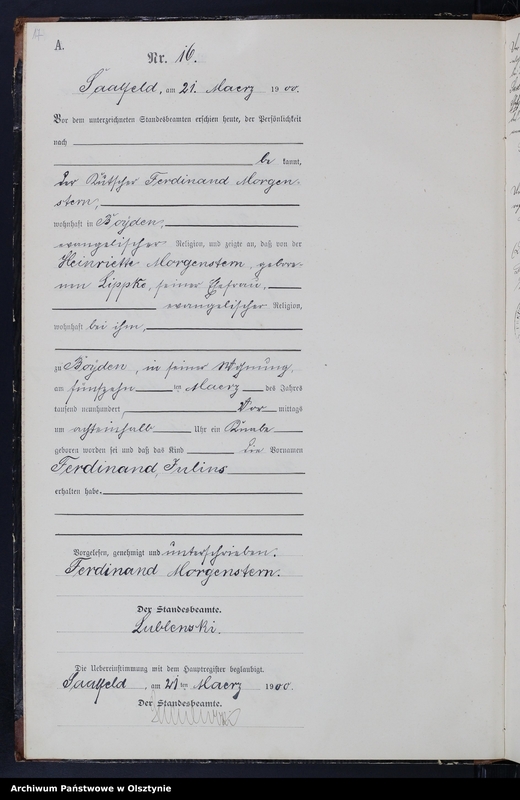 A.
Nr. 16.
Saalfeld, am 21. Maerz 1900.
Vor dem unterzeichneten Standesbeamten erschien heute, der Persönlichkeit
nach
be kannt,
der Kutscher Ferdinand Morgen-
stern,
wohnhaft in Boyden,
evangelischer Religion, und zeigte an, daß von der
Heinriette Morgenstern, gebore-
nen Lippke, seiner Ehefrau,
evangelischer Religion,
wohnhaft bei ihm,
zu Boyden, in seiner Wohnung,
am fünfzehn ten Maerz des Jahres
tausend neunhundert, Vor mittags
um achteinhalb Uhr ein Knabe
geboren worden sei und daß das Kind die Vornamen
Ferdinand, Julius
erhalten habe.
Vorgelesen, genehmigt und unterschrieben.
Ferdinand Morgenstern.
Der Standesbeamte.
Lublenski.
Die Uebereinstimmung mit dem Hauptregister beglaubigt.
Saalfeld, am 21 ten Maerz 1900.
Der Standesbeamte.
Archiwum Państwowe w Olsztynie